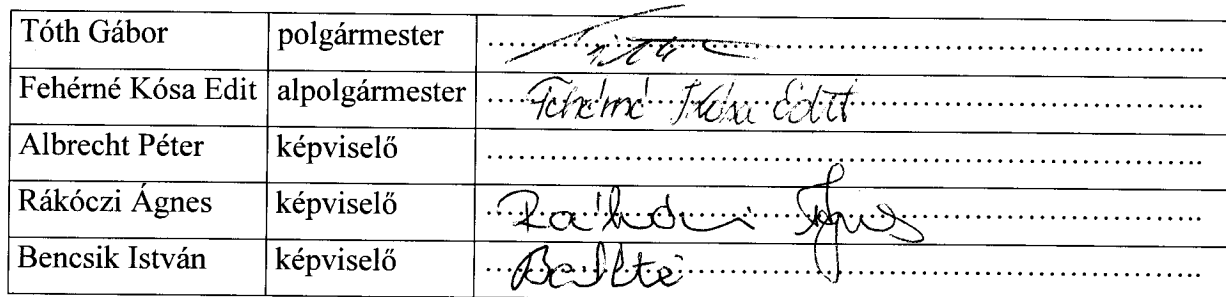 Tóth Gábor polgármester ........................................................................
Fehérné Kósa Edit alpolgármester ....Fehérné Kósa Edit........................................
Albrecht Péter képviselő ........................................................................
Rákóczi Ágnes képviselő ....Rákóczi Ágnes........................................
Bencsik István képviselő ........................................................................